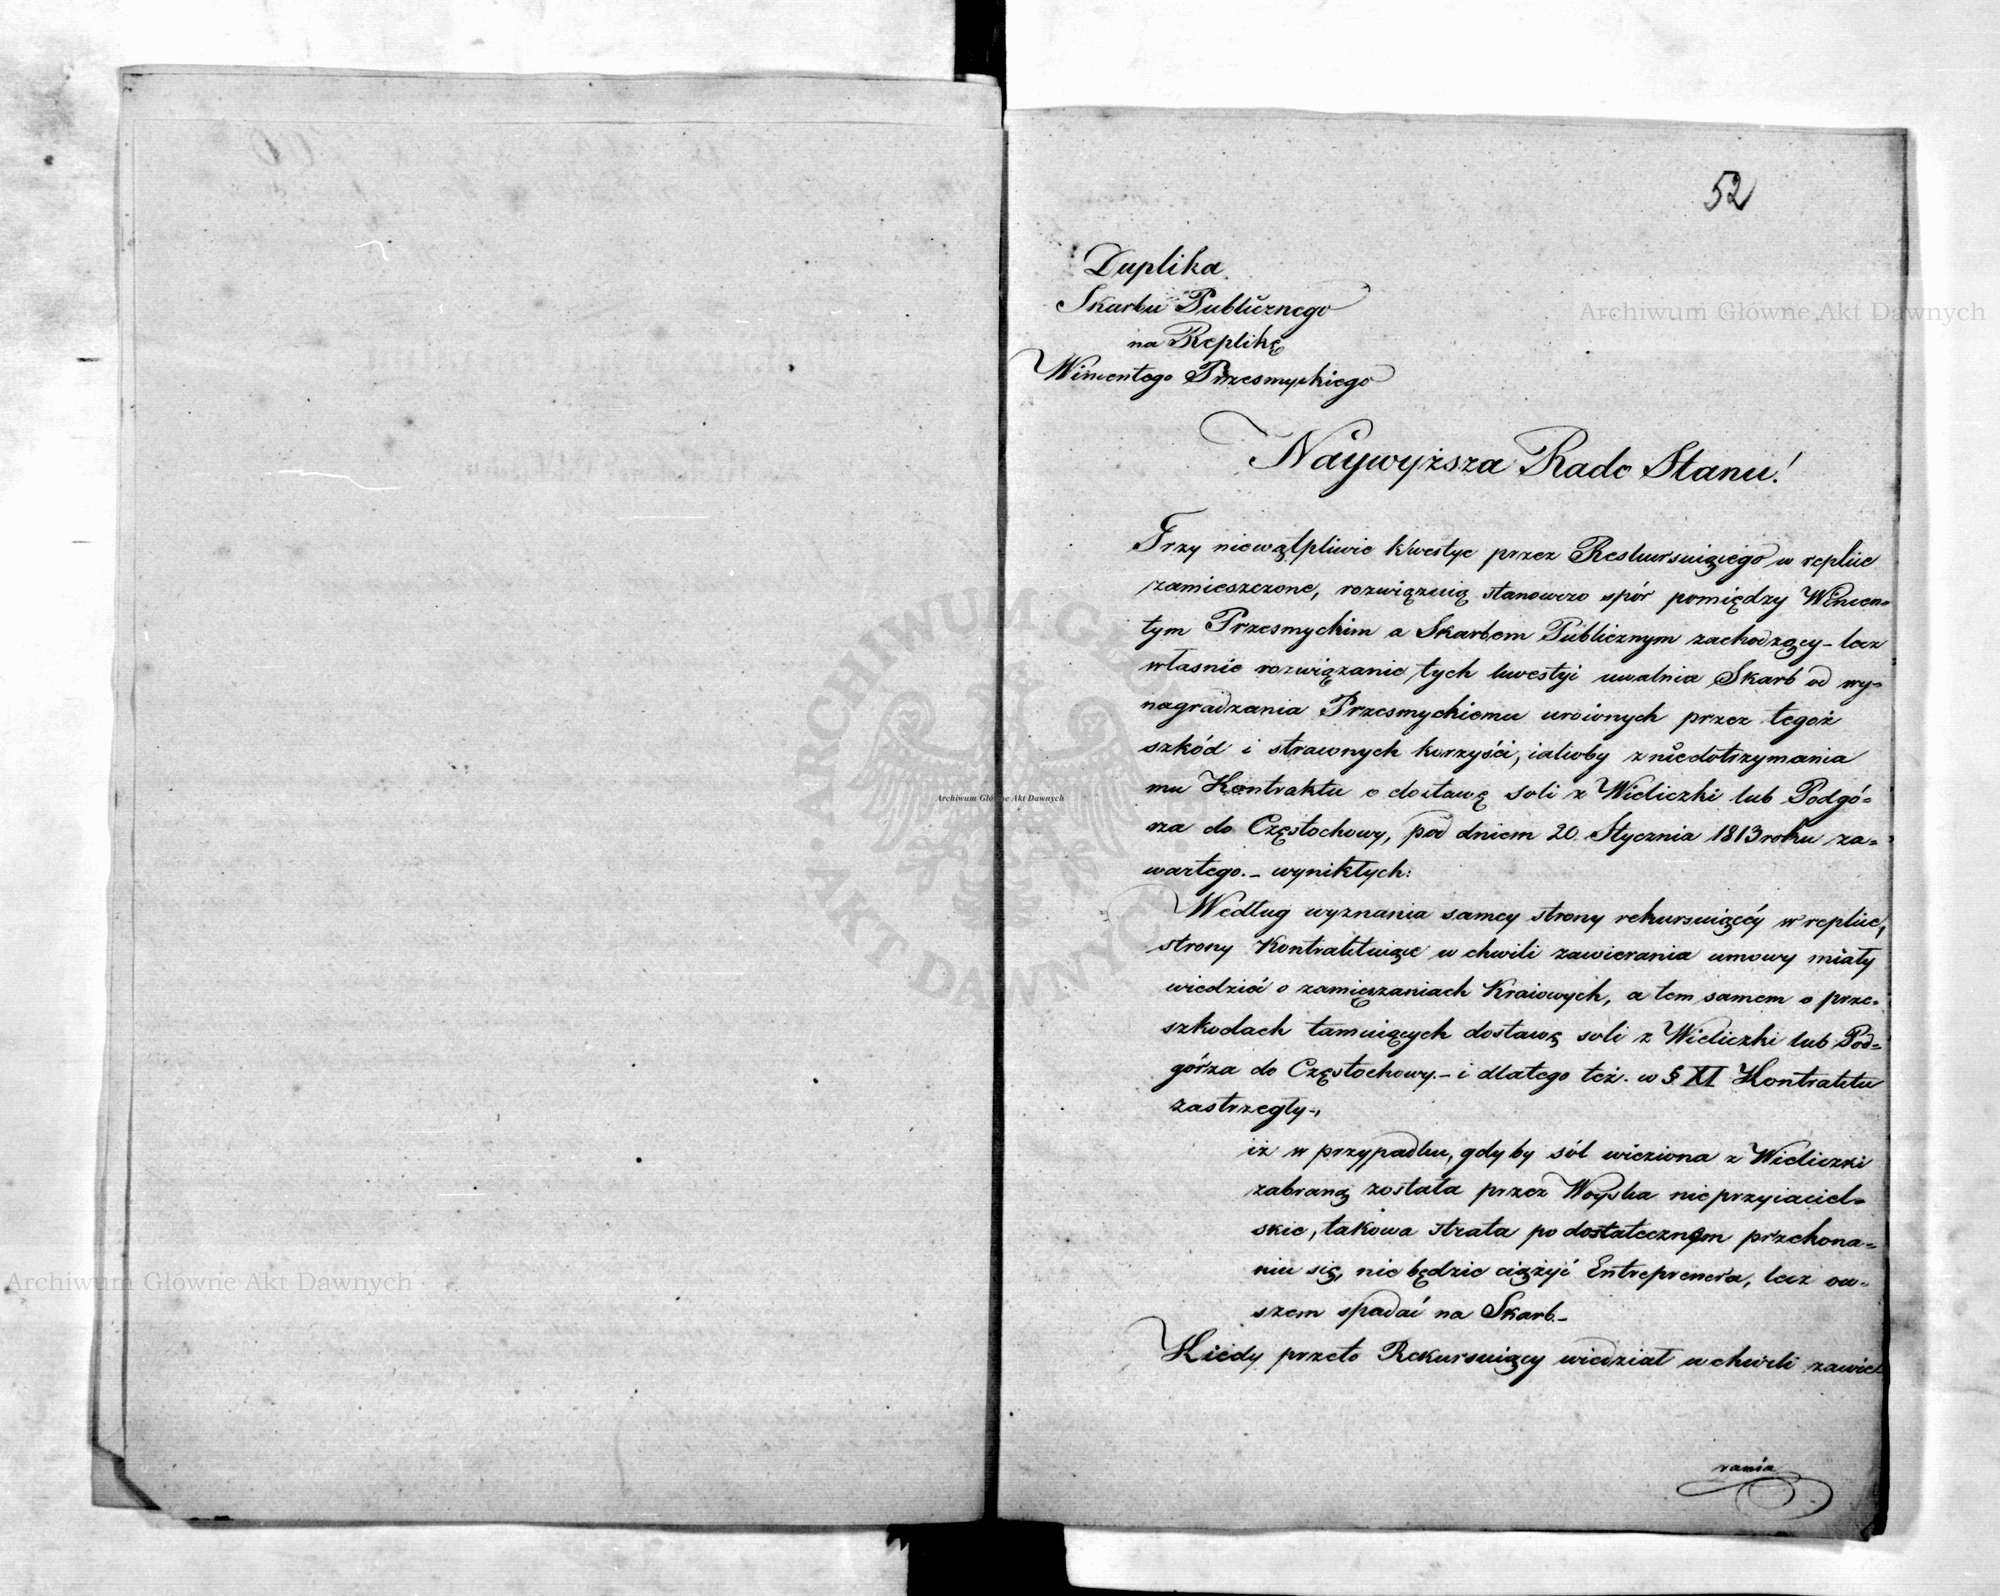 52
Duplika
Skarbu Publicznego
na Replikę
Wincentego Przesmyckiego
Naywyższa Rado Stanu!
Trzy niewątpliwie kwestye przez Rekursuiącego w replice
zamieszczone, rozwiązuią stanowczo spór pomiędzy Wincen=
tym Przesmyckim a Skarbem Publicznym zachodzący – lecz
własnie rozwiązanie tych kwestyi uwalnia Skarb od wy=
nagradzania Przesmyckiemu uroionych przez tegoż
szkód i straconych korzyści, iakoby z niedotrzymania
mu Kontraktu o dostawę soli z Wieliczki lub Podgó=
rza do Częstochowy, pod dniem 20 Stycznia 1813 roku za=
wartego. – wynikłych:
Według wyznania samey strony rekursuiącéy w replice,
strony Kontraktuiące w chwili zawierania umowy miały
wiedzieć o zamięszaniach Kraiowych, a tem samem o prze=
szkodach tamuiących dostawę soli z Wieliczki lub Pod=
górza do Częstochowy. – i dlatego też. w § XI Kontraktu
zastrzegły –,
iż w przypadku, gdyby sól wieziona z Wieliczki
zabraną została przez Woyska nieprzyiaciel=
skie, takowa strata po dostatecznem przekona=
niu się, nie będzie ciążyć Entreprenera, lecz ow=
szem spadać na Skarb. –
Kiedy przeto Rekursuiący wiedział w chwili zawie=
rania
Archiwum Główne Akt Dawnych
Archiwum Główne Akt Dawnych
Archiwum Główne Akt Dawnych
ARCHIWUM GŁÓWNE AKT DAWNYCH